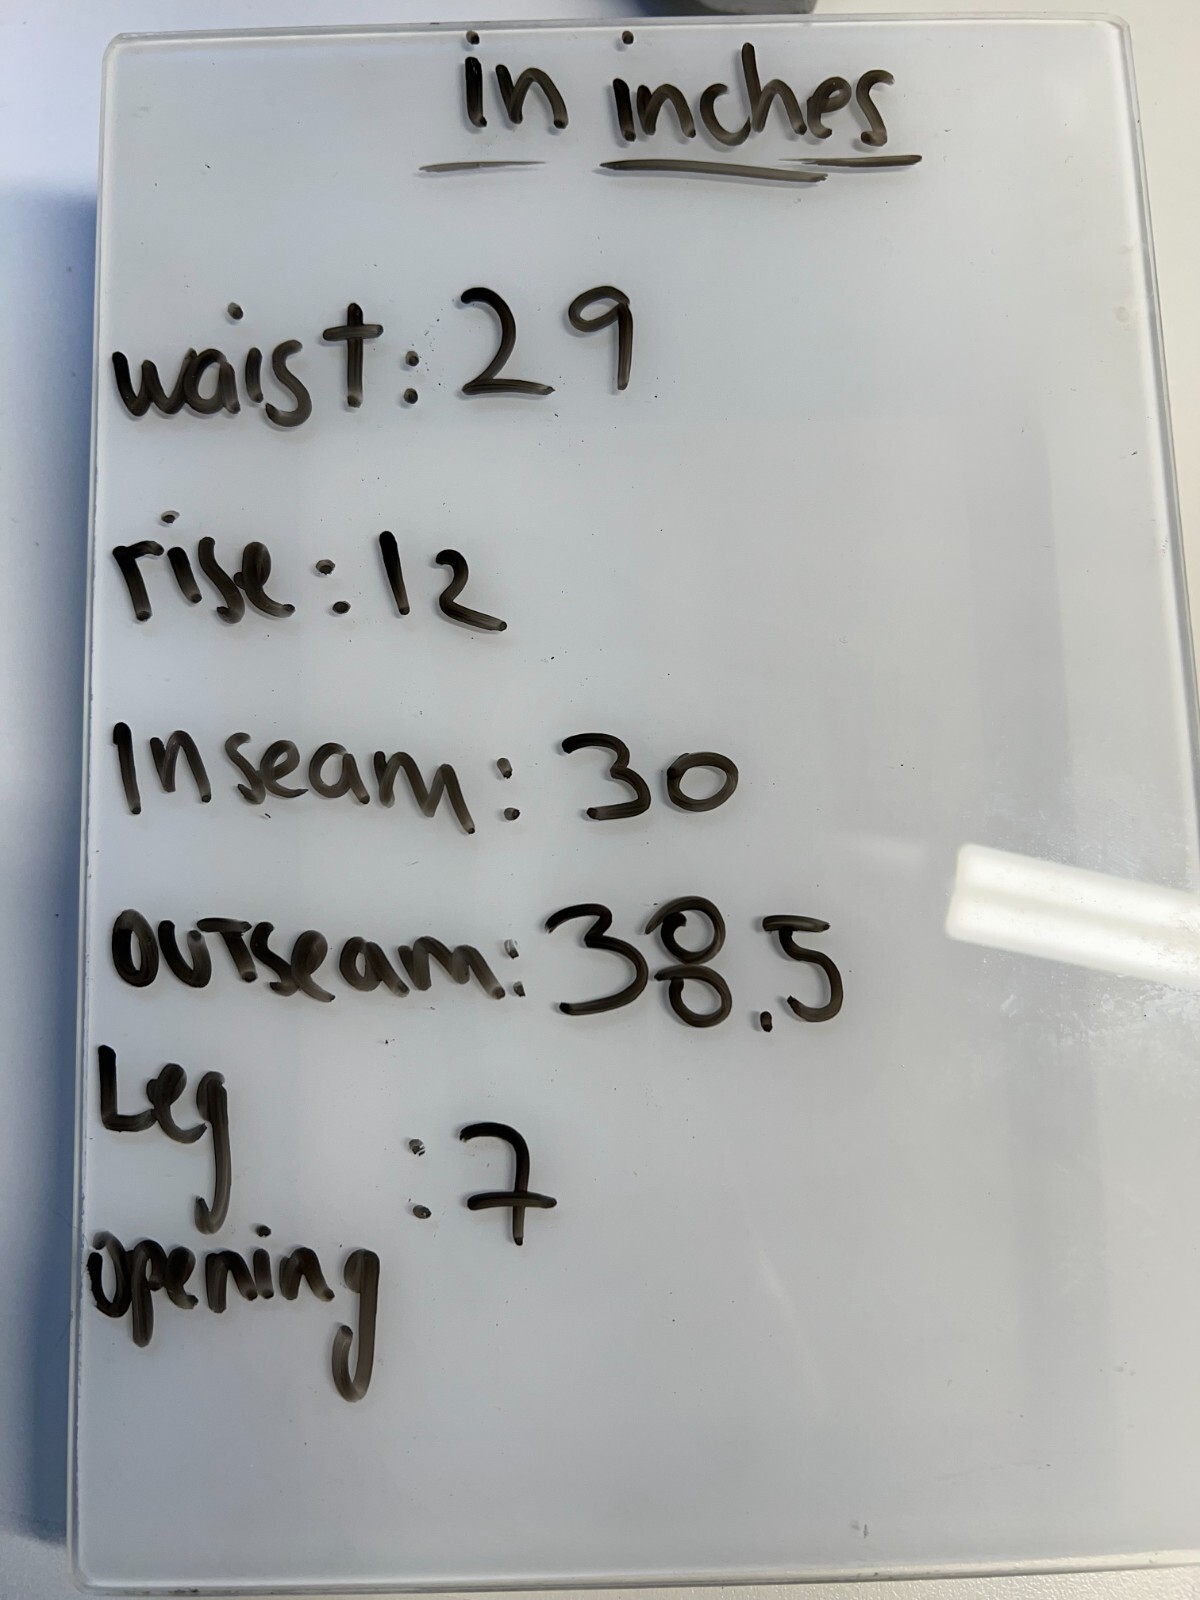 in inches
waist: 29
rise: 12
Inseam: 30
outseam: 38.5
Leg
: 7
opening